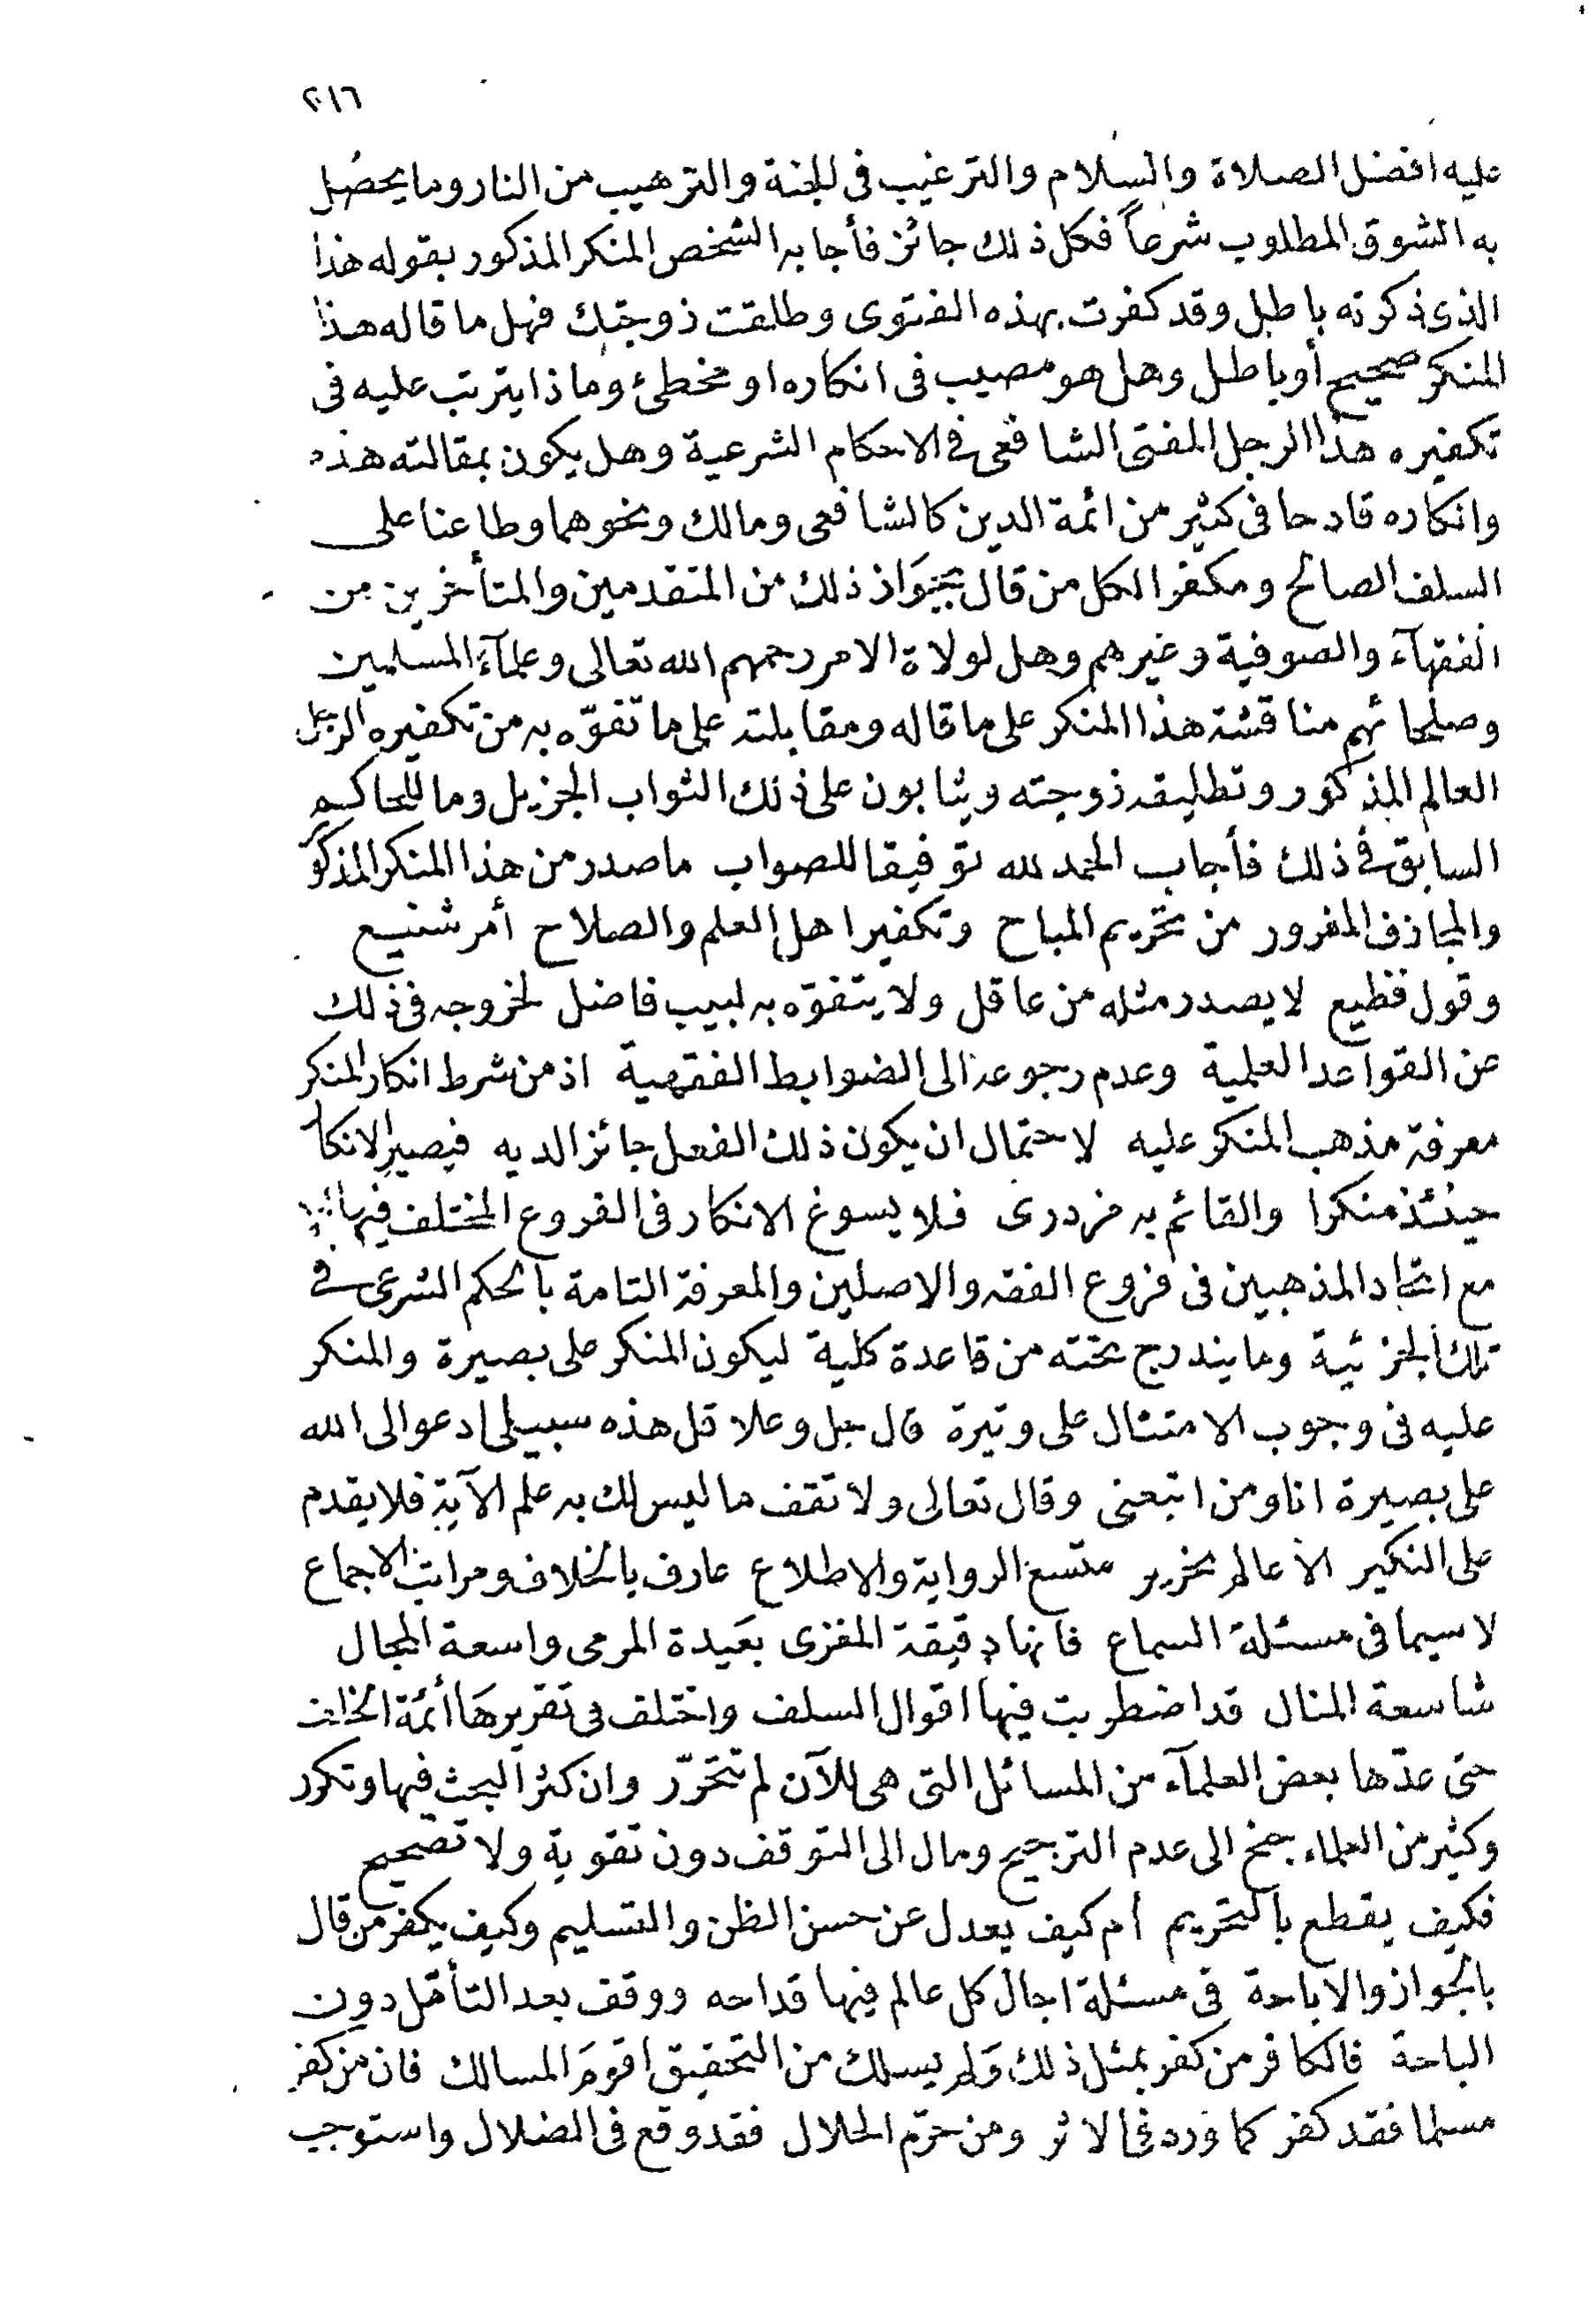 ٢١٦
عليه افضل الصلاة والسلام والترغيب فى الجنة والترهيب من النار وما يحصل
به الشوق المطلوب شرعاً فكل ذلك جائز فأجابه الشخص المنكر المذكور بقوله هذا
الذى ذكرته باطل وقد كفرت بهذه الفتوى وطلقت زوجتك فهل ما قاله هذا
المنكر صحيح أو باطل وهل هو مصيب فى انكاره او مخطئ وماذا يترتب عليه فى
تكفيره هذا الرجل المفتى الشافعى فى الاحكام الشرعية وهل يكون بمقالته هذه
وانكاره قادحا فى كثير من ائمة الدين كالشافعى ومالك ونحوهما وطاعنا على
السلف الصالح ومكفرا لكل من قال بجَوَاز ذلك من المتقدمين والمتأخرين من
الفقهآء والصوفية وغيرهم وهل لولاة الامر رحمهم الله تعالى وعلمآء المسلمين
وصلحائهم مناقشة هذا المنكر على ما قاله ومقابلته على ما تفوّه به من تكفيره الرجل
العالم المذكور وتطليقه زوجته ويثابون على ذلك الثواب الجزيل وما للحاكم
السابق فى ذلك فأجاب الحمد لله توفيقا للصواب ما صدر من هذا المنكر المذكور
والمجازف المغرور من تحريم المباح وتكفير اهل العلم والصلاح أمر شنيع
وقول فظيع لا يصدر مثله من عاقل ولا يتفوّه به لبيب فاضل لخروجه فى ذلك
عن القواعد العلمية وعدم رجوعه الى الضوابط الفقهية اذ من شرط انكار المنكر
معرفة مذهب المنكر عليه لاحتمال ان يكون ذلك الفعل جائزا لديه فيصير الانكار
حينئذ منكرا والقائم به مزدرى فلا يسوغ الانكار فى الفروع المختلف فيها الا
مع اتحاد المذهبين فى فروع الفقه والاصلين والمعرفة التامة بالحكم الشرعى فى
تلك الجزئية وما يندرج تحته من قاعدة كلية ليكون المنكر على بصيرة والمنكر
عليه فى وجوب الامتثال على وتيرة قال جل وعلا قل هذه سبيلى ادعو الى الله
على بصيرة انا ومن اتبعنى وقال تعالى ولا تقف ما ليس لك به علم الآية فلا يقدم
على النكير الا عالم نحرير متسع الرواية والاطلاع عارف بالخلاف ومراتب الاجماع
لا سيما فى مسئلة السماع فانها دقيقة المغزى بعَيدة المرمى واسعة المجال
شاسعة المنال قد اضطربت فيها اقوال السلف واختلف فى تقريرهَا أئمة الخلف
حتى عدّها بعض العلمآء من المسائل التى هى للآن لم تتحَرّر وان كثر البحث فيها وتكرر
وكثير من العلماء جنح الى عدم الترجيح ومال الى التوقف دون تقوية ولا تصحيح
فكيف يقطع بالتحريم أم كيف يعدل عن حسن الظن والتسليم وكيف يكفر من قال
بالجواز والاباحة فى مسئلة اجال كل عالم فيها قداحه ووقف بعد التأمّل دون
الباحة فالكافر من كفر بمثل ذلك وَلم يسلك من التحقيق اقومَ المسالك فان من كفر
مسلما فقد كفر كما ورد فى الاثر ومن حرّم الحلال فقد وقع فى الضلال واستوجب